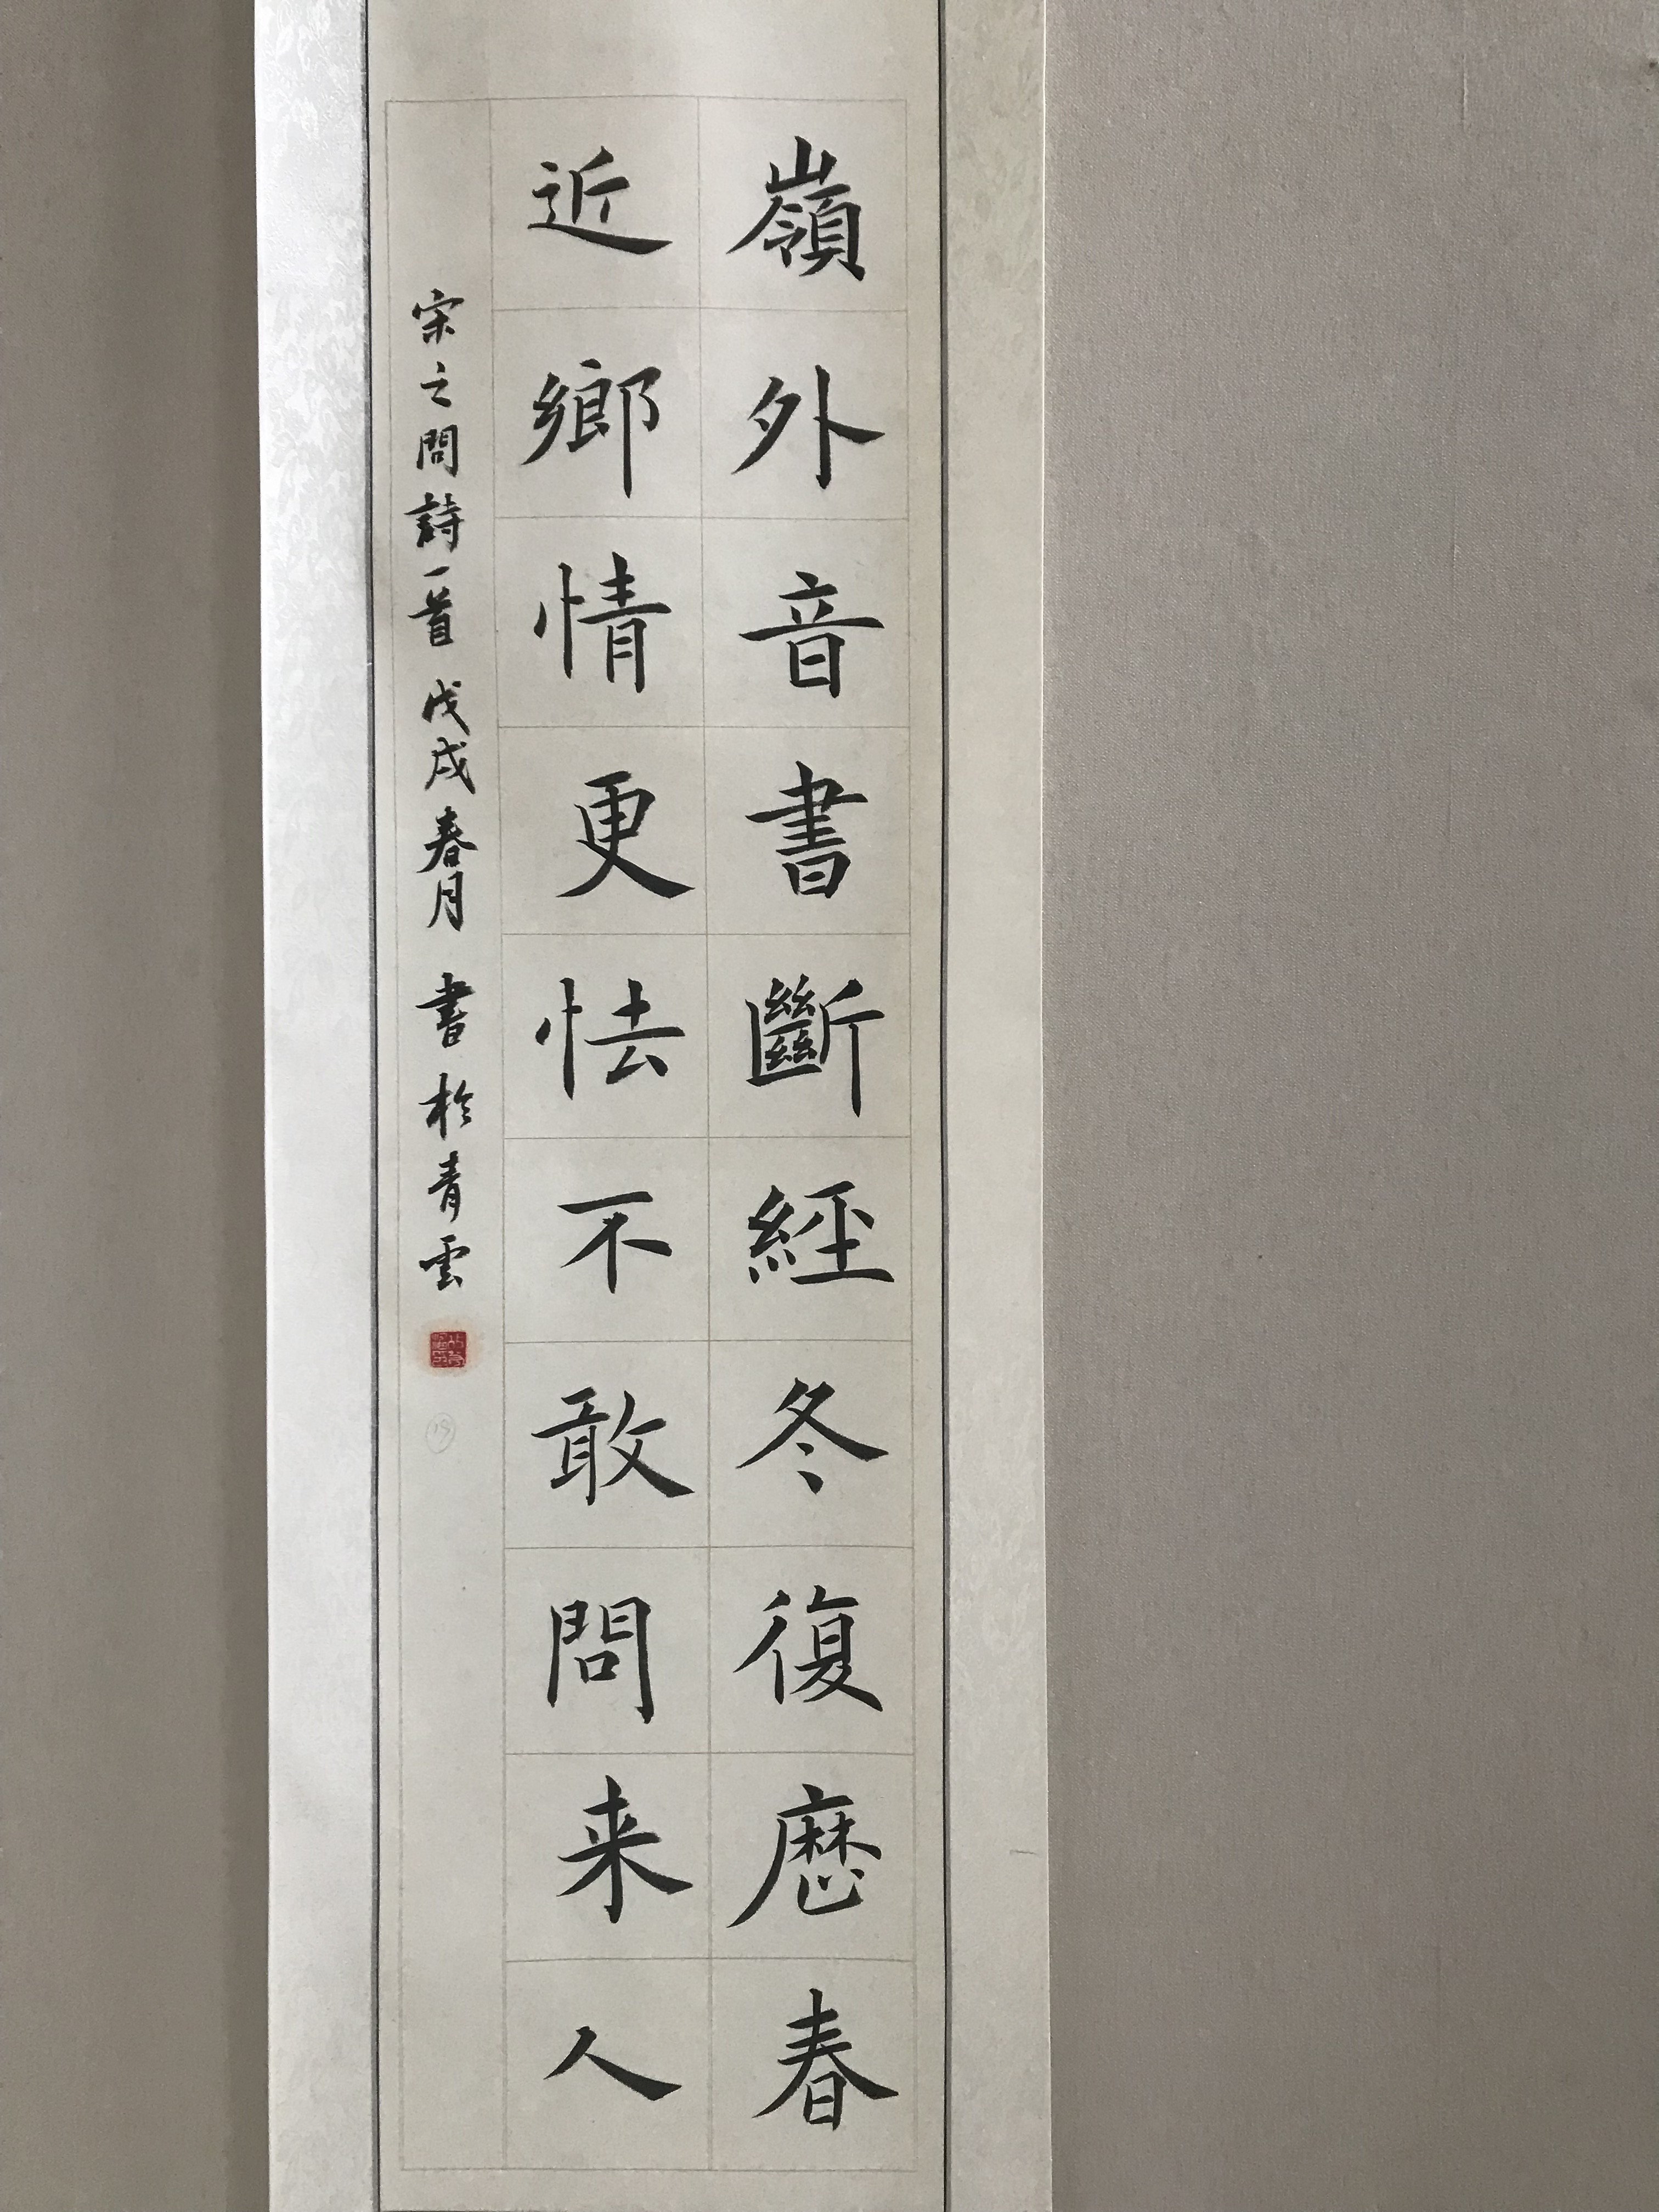 嶺外音書斷經冬復歷春
近鄉情更怯不敢問来人
宋之問詩一首 戊戌春月 書於青雲